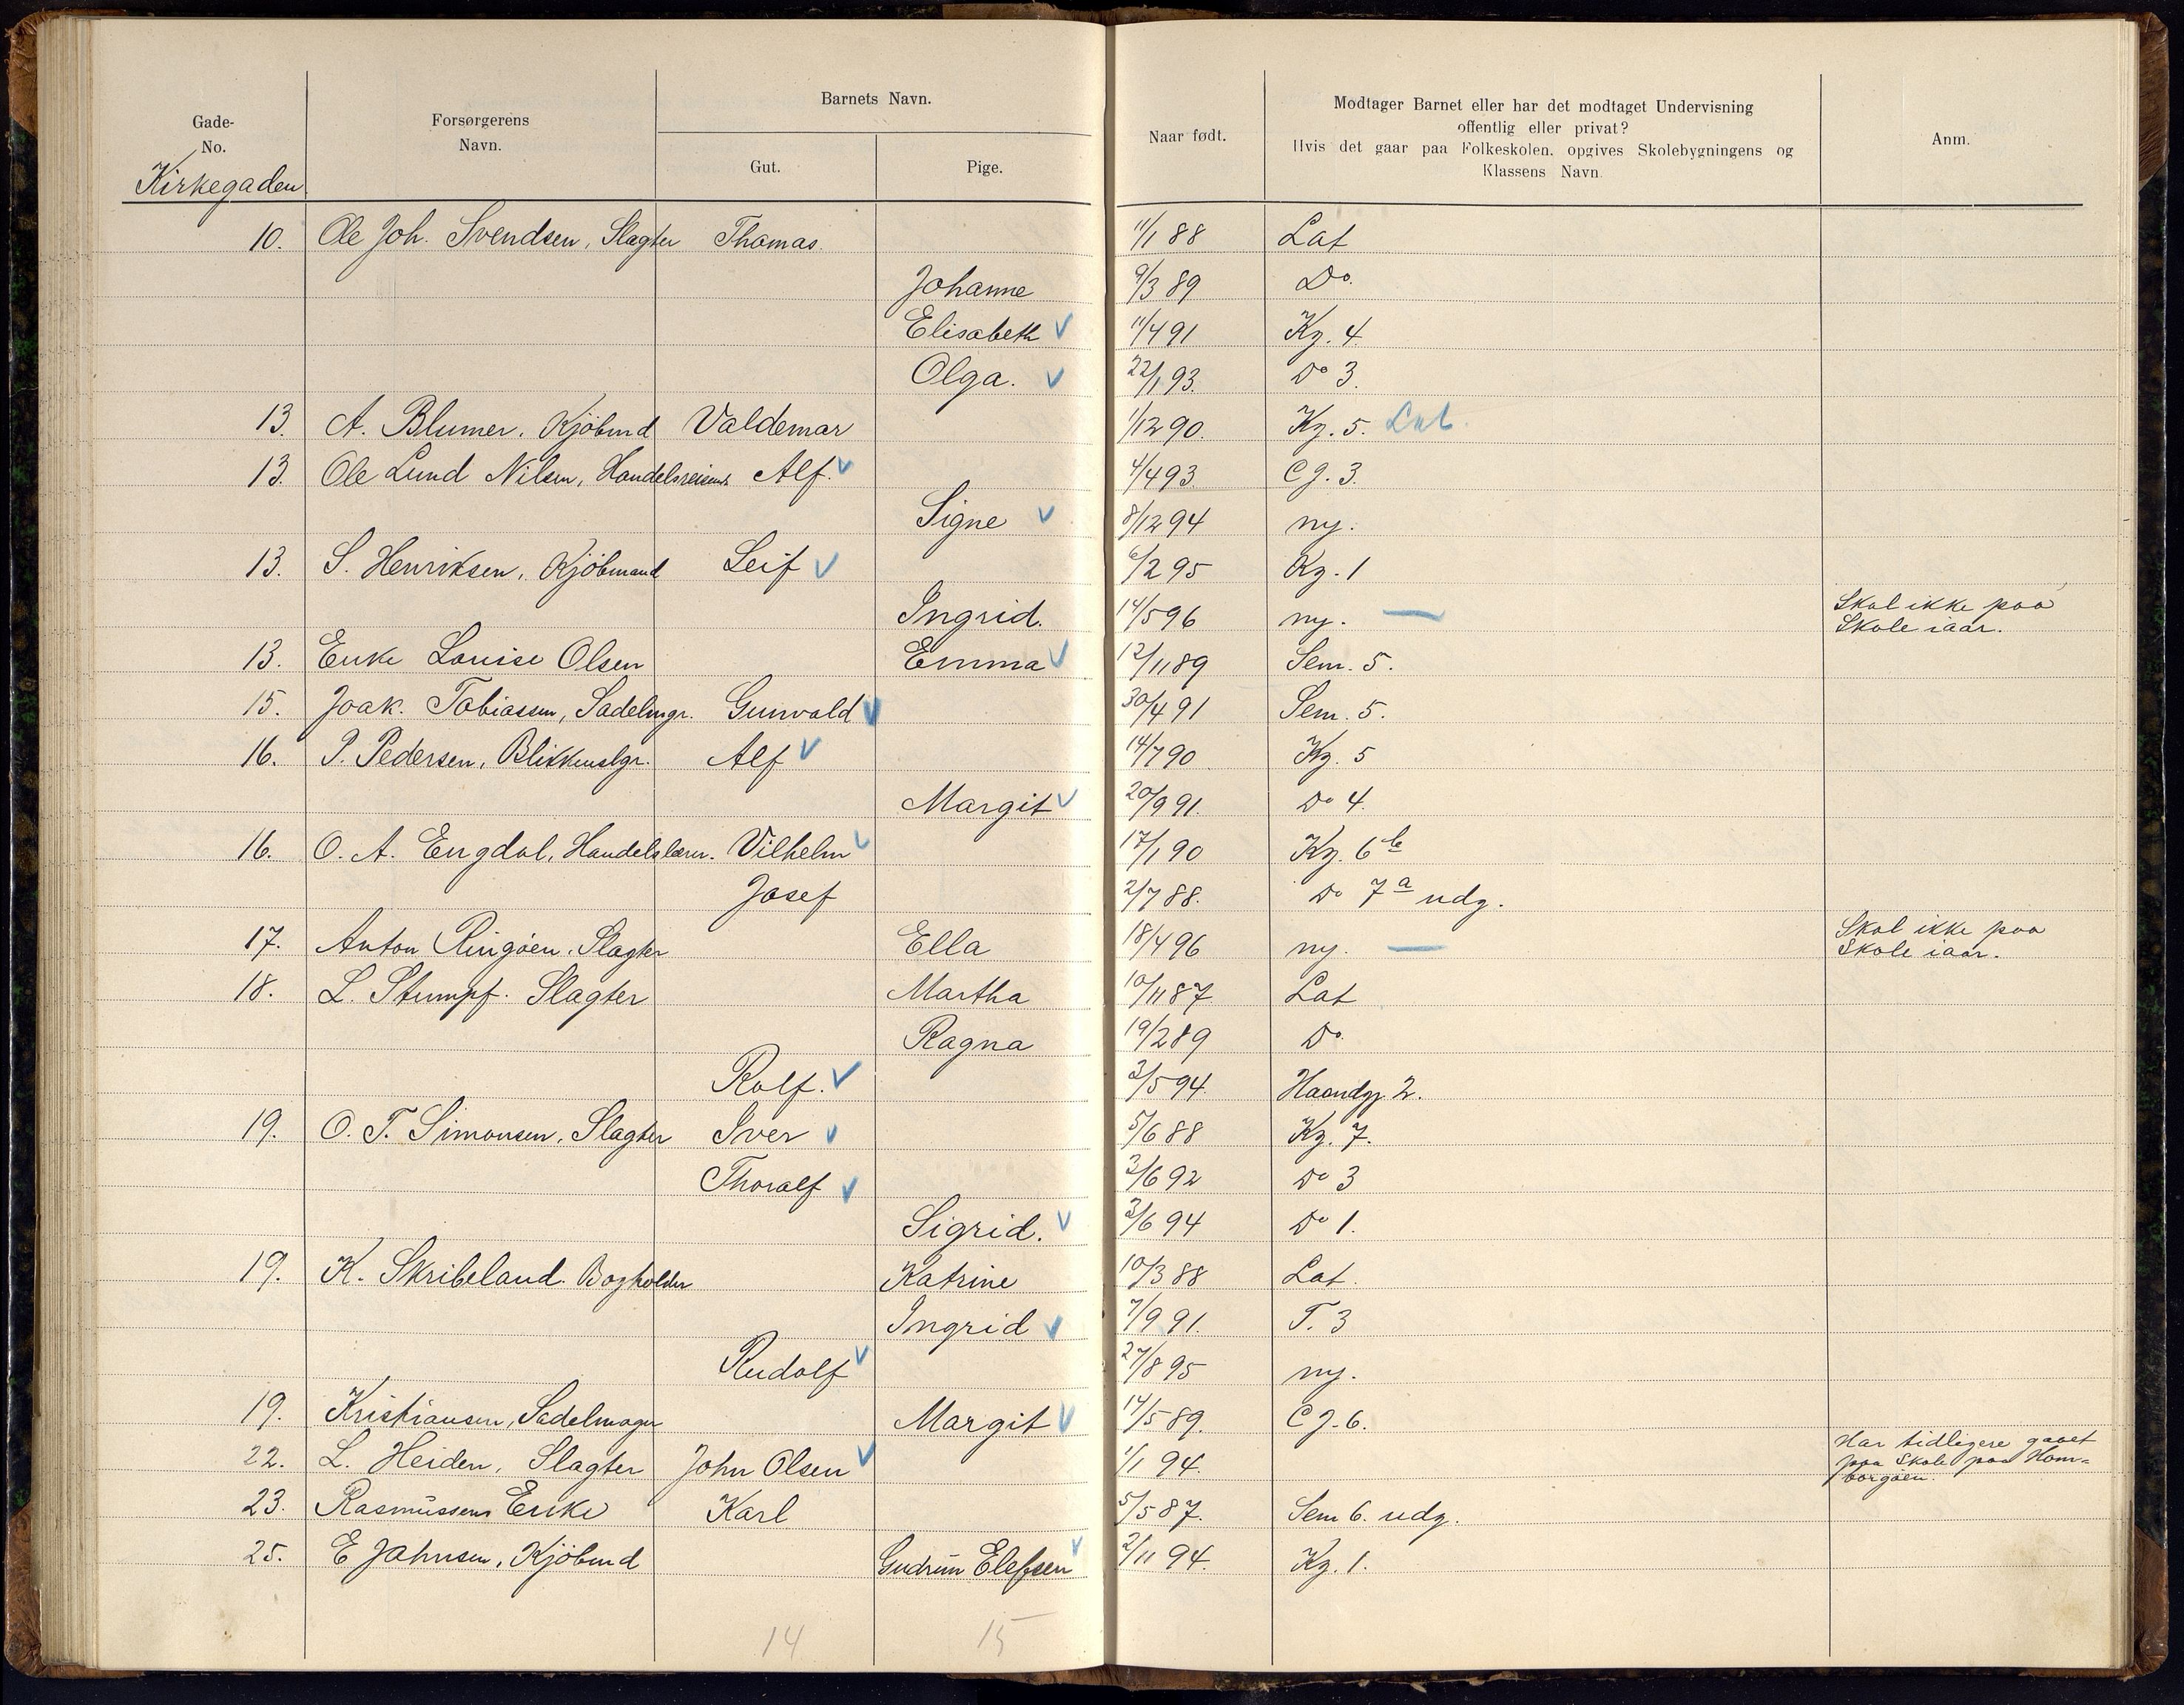 Gade-
No.
Forsørgerens
Navn.
Barnets Navn.
Gut.
Pige.
Naar født.
Modtager Barnet eller har det modtaget Undervisning
offentlig eller privat?
Hvis det gaar paa Folkeskolen, opgives Skolebygningens og
Klassens Navn.
Anm.
Kirkegaden
10. Ole Joh. Svendsen, Slagter Thomas. 11/1 88 Lat
Johanne 9/3 89 Do.
Elisabeth ✓ 11/4 91 Kg. 4
Olga. ✓ 22/1 93. Do 3.
13. A. Blumer, Kjöbmd Valdemar 1/12 90. Kg. 5. Lat.
13. Ole Lund Nilsen, Alf. ✓ 4/4 93. C J. 3.
Signe ✓ 8/12 94 ny.
13. S. Henriksen, Kjöbmand Leif ✓ 6/2 95 Kg. 1
Ingrid. 14/5 96 ny. — Skal ikke paa
Skole iaar.
13. Enke Louise Olsen Emma ✓ 12/11 89 Sem. 5.
15. Joak. Tobiassen, Sadelmgr. Gunvald ✓ 30/4 91 Sem. 5.
16. P. Pedersen, Blikkenslgr. Alf ✓ 14/7 90 Kg. 5
Margit ✓ 20/9 91. Do 4.
16. O. A. Engdal, Handelslærer. Vilhelm ✓ 17/1 90 Kg. 6b
Josef 2/7 88. Do 7a udg.
17. Anton Ringöen, Slagter Ella 18/4 96 ny. — Skal ikke paa
Skole iaar.
18. L. Stumpf. Slagter Martha 10/11 87 Lat
Ragna 19/2 89 Do.
Rolf. ✓ 3/5 94. Haandgj. 2.
19. O. T. Simonsen, Slagter Iver ✓ 5/6 88 Kg. 7.
Thoralf ✓ 3/6 92 Do 3
Sigrid. ✓ 3/6 94 Do 1.
19. K. Skribeland. Bogholder Katrine 10/3 88 Lat.
Ingrid ✓ 7/9 91. T. 3
Rudolf ✓ 27/8 95 ny.
19. Kristiansen, Sadelmager Margit ✓ 14/5 89. C J. 6.
22. L. Heiden, Slagter John Olsen ✓ 1/1 94. Har tidligere gaaet
paa Skole paa Hom=
borgöen.
23. Rasmüssens Enke Karl 5/5 87. Sem 6. udg.
25. E Jahnsen, Kjöbmd Gudrün Elefsen ✓ 2/11 94. Kg. 1.
14 15